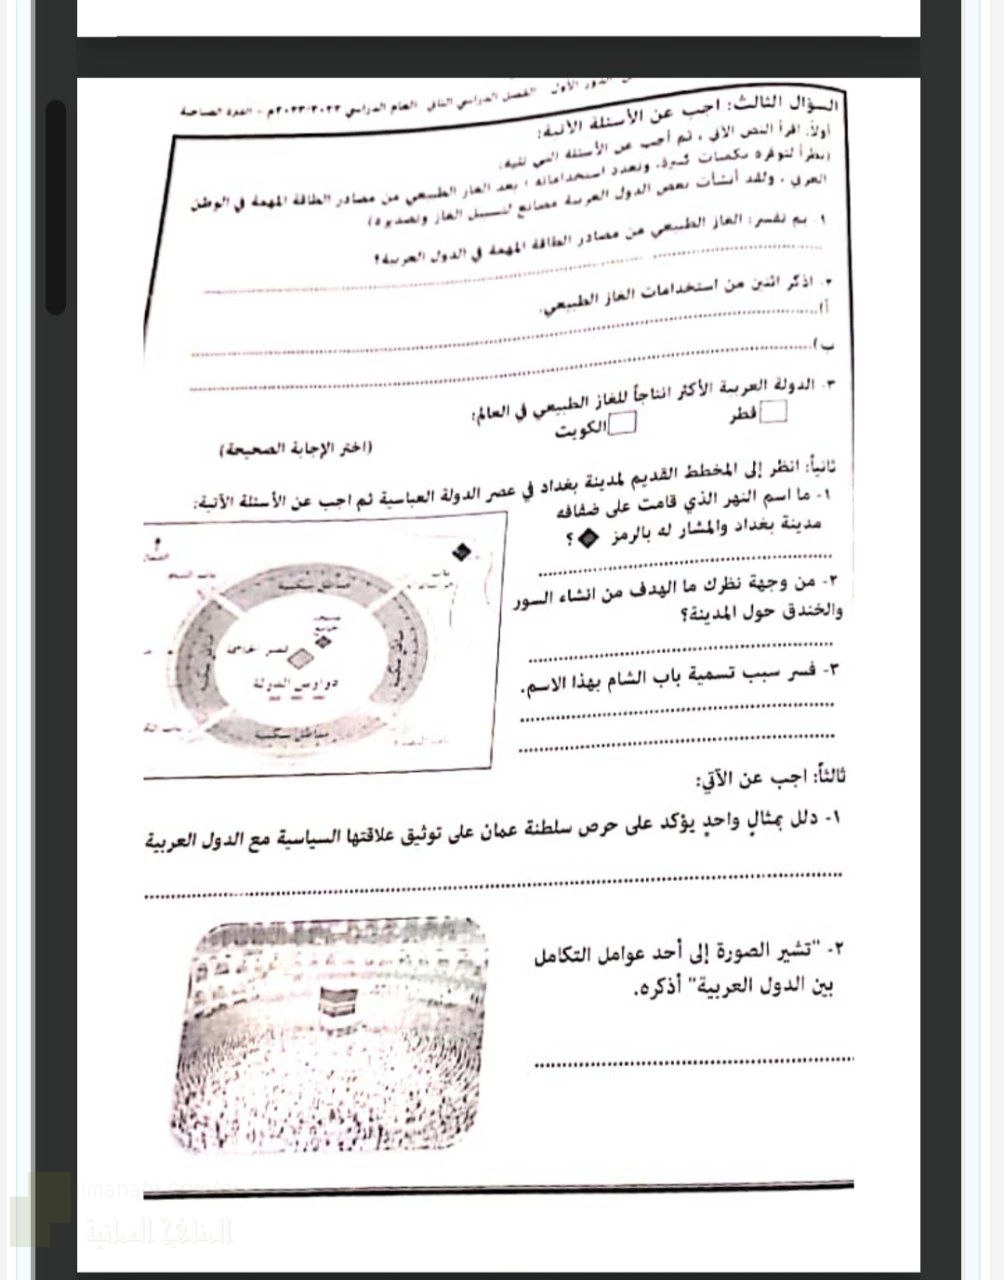 الدور الأول - الفصل الدراسي الثاني العام الدراسي ٢٠٢٢/٢٠٢٣م - الفترة الصباحية
السؤال الثالث: اجب عن الأسئلة الآتية:
أولاً: اقرأ النص الآتي ، ثم أجب عن الأسئلة التي تليه:
(نظراً لتوفره بكميات كبيرة، وتعدد استخداماته ؛ يعد الغاز الطبيعي من مصادر الطاقة المهمة في الوطن
العربي ، ولقد أنشأت بعض الدول العربية مصانع لتسييل الغاز وتصديره)
١- بم تفسر: الغاز الطبيعي من مصادر الطاقة المهمة في الدول العربية؟
٢- اذكر اثنين من استخدامات الغاز الطبيعي.
أ)
ب)
٣- الدولة العربية الأكثر انتاجاً للغاز الطبيعي في العالم:
قطر
الكويت
(اختر الإجابة الصحيحة)
ثانياً: انظر إلى المخطط القديم لمدينة بغداد في عصر الدولة العباسية ثم اجب عن الأسئلة الآتية:
١- ما اسم النهر الذي قامت على ضفافه
مدينة بغداد والمشار له بالرمز ؟
٢- من وجهة نظرك ما الهدف من انشاء السور
والخندق حول المدينة؟
٣- فسر سبب تسمية باب الشام بهذا الاسم.
باب الشام
باب
مناطق سكنية
مسجد
جامع
قصر
مناطق سكنية
مناطق سكنية
دواوين الدولة
مناطق سكنية
ثالثاً: اجب عن الآتي:
١- دلل بمثالٍ واحدٍ يؤكد على حرص سلطنة عمان على توثيق علاقتها السياسية مع الدول العربية
٢- "تشير الصورة إلى أحد عوامل التكامل
بين الدول العربية" أذكره.